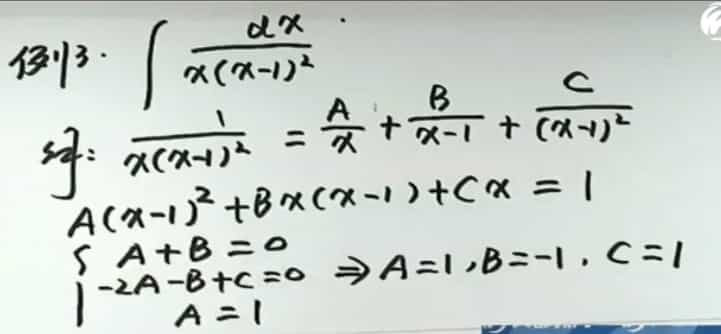 例3. ∫ dx / x(x-1)²
解: 1 / x(x-1)² = A/x + B/(x-1) + C/(x-1)²
A(x-1)² + Bx(x-1) + Cx = 1
{ A+B=0
-2A-B+C=0 ⇒ A=1, B=-1, C=1
A=1